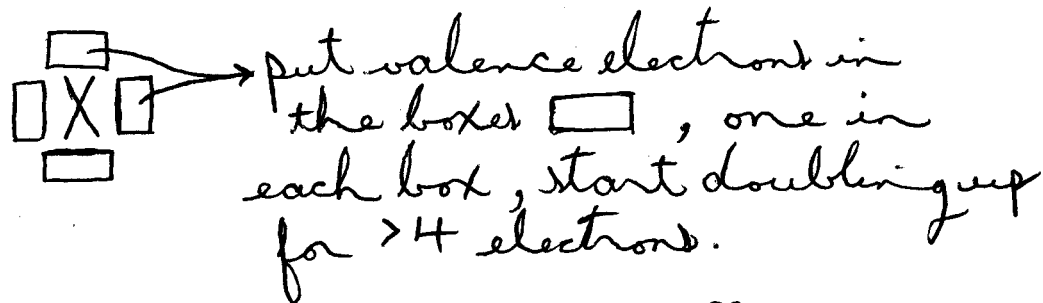 X put valence electrons in
the boxes , one in
each box, start doubling up
for >4 electrons.